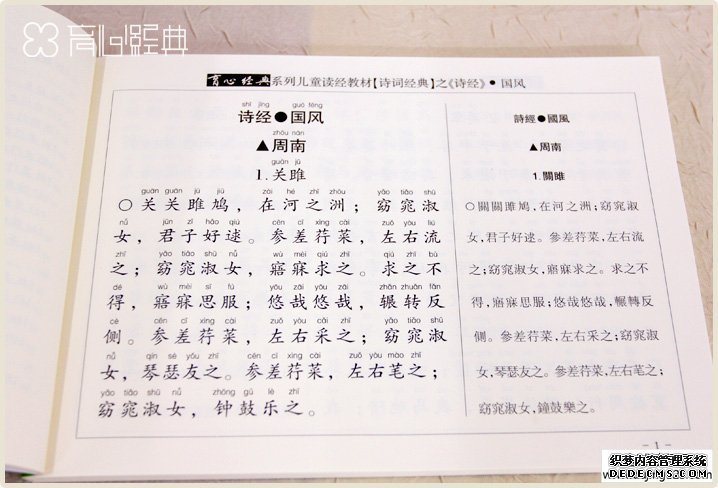 育心經典
育心经典系列儿童读经教材【诗词经典】之《诗经》●国风
shī jīng guó fēng
诗经●国风
zhōu nán
▲周南
guān jū
1.关雎
guān guān jū jiū zài hé zhī zhōu yǎo tiǎo shū
○关关雎鸠，在河之洲；窈窕淑
nǚ jūn zǐ hǎo qiú cēn cī xìng cài zuǒ yòu liú
女，君子好逑。参差荇菜，左右流
zhī yǎo tiǎo shū nǚ wù mèi qiú zhī qiú zhī bù
之；窈窕淑女，寤寐求之。求之不
dé wù mèi sī fú yōu zāi yōu zāi zhǎn zhuǎn fǎn
得，寤寐思服；悠哉悠哉，辗转反
cè cēn cī xìng cài zuǒ yòu cǎi zhī yǎo tiǎo shū
侧。参差荇菜，左右采之；窈窕淑
nǚ qín sè yǒu zhī cēn cī xìng cài zuǒ yòu mào zhī
女，琴瑟友之。参差荇菜，左右芼之；
yǎo tiǎo shū nǚ zhōng gǔ lè zhī
窈窕淑女，钟鼓乐之。
詩經●國風
▲周南
1.關雎
○關關雎鳩，在河之洲；窈窕淑
女，君子好逑。參差荇菜，左右流
之；窈窕淑女，寤寐求之。求之不
得，寤寐思服；悠哉悠哉，輾轉反
側。參差荇菜，左右采之；窈窕淑
女，琴瑟友之。參差荇菜，左右芼之；
窈窕淑女，鐘鼓樂之。
- 1 -
织梦内容管理系统
DEDECMS.COM